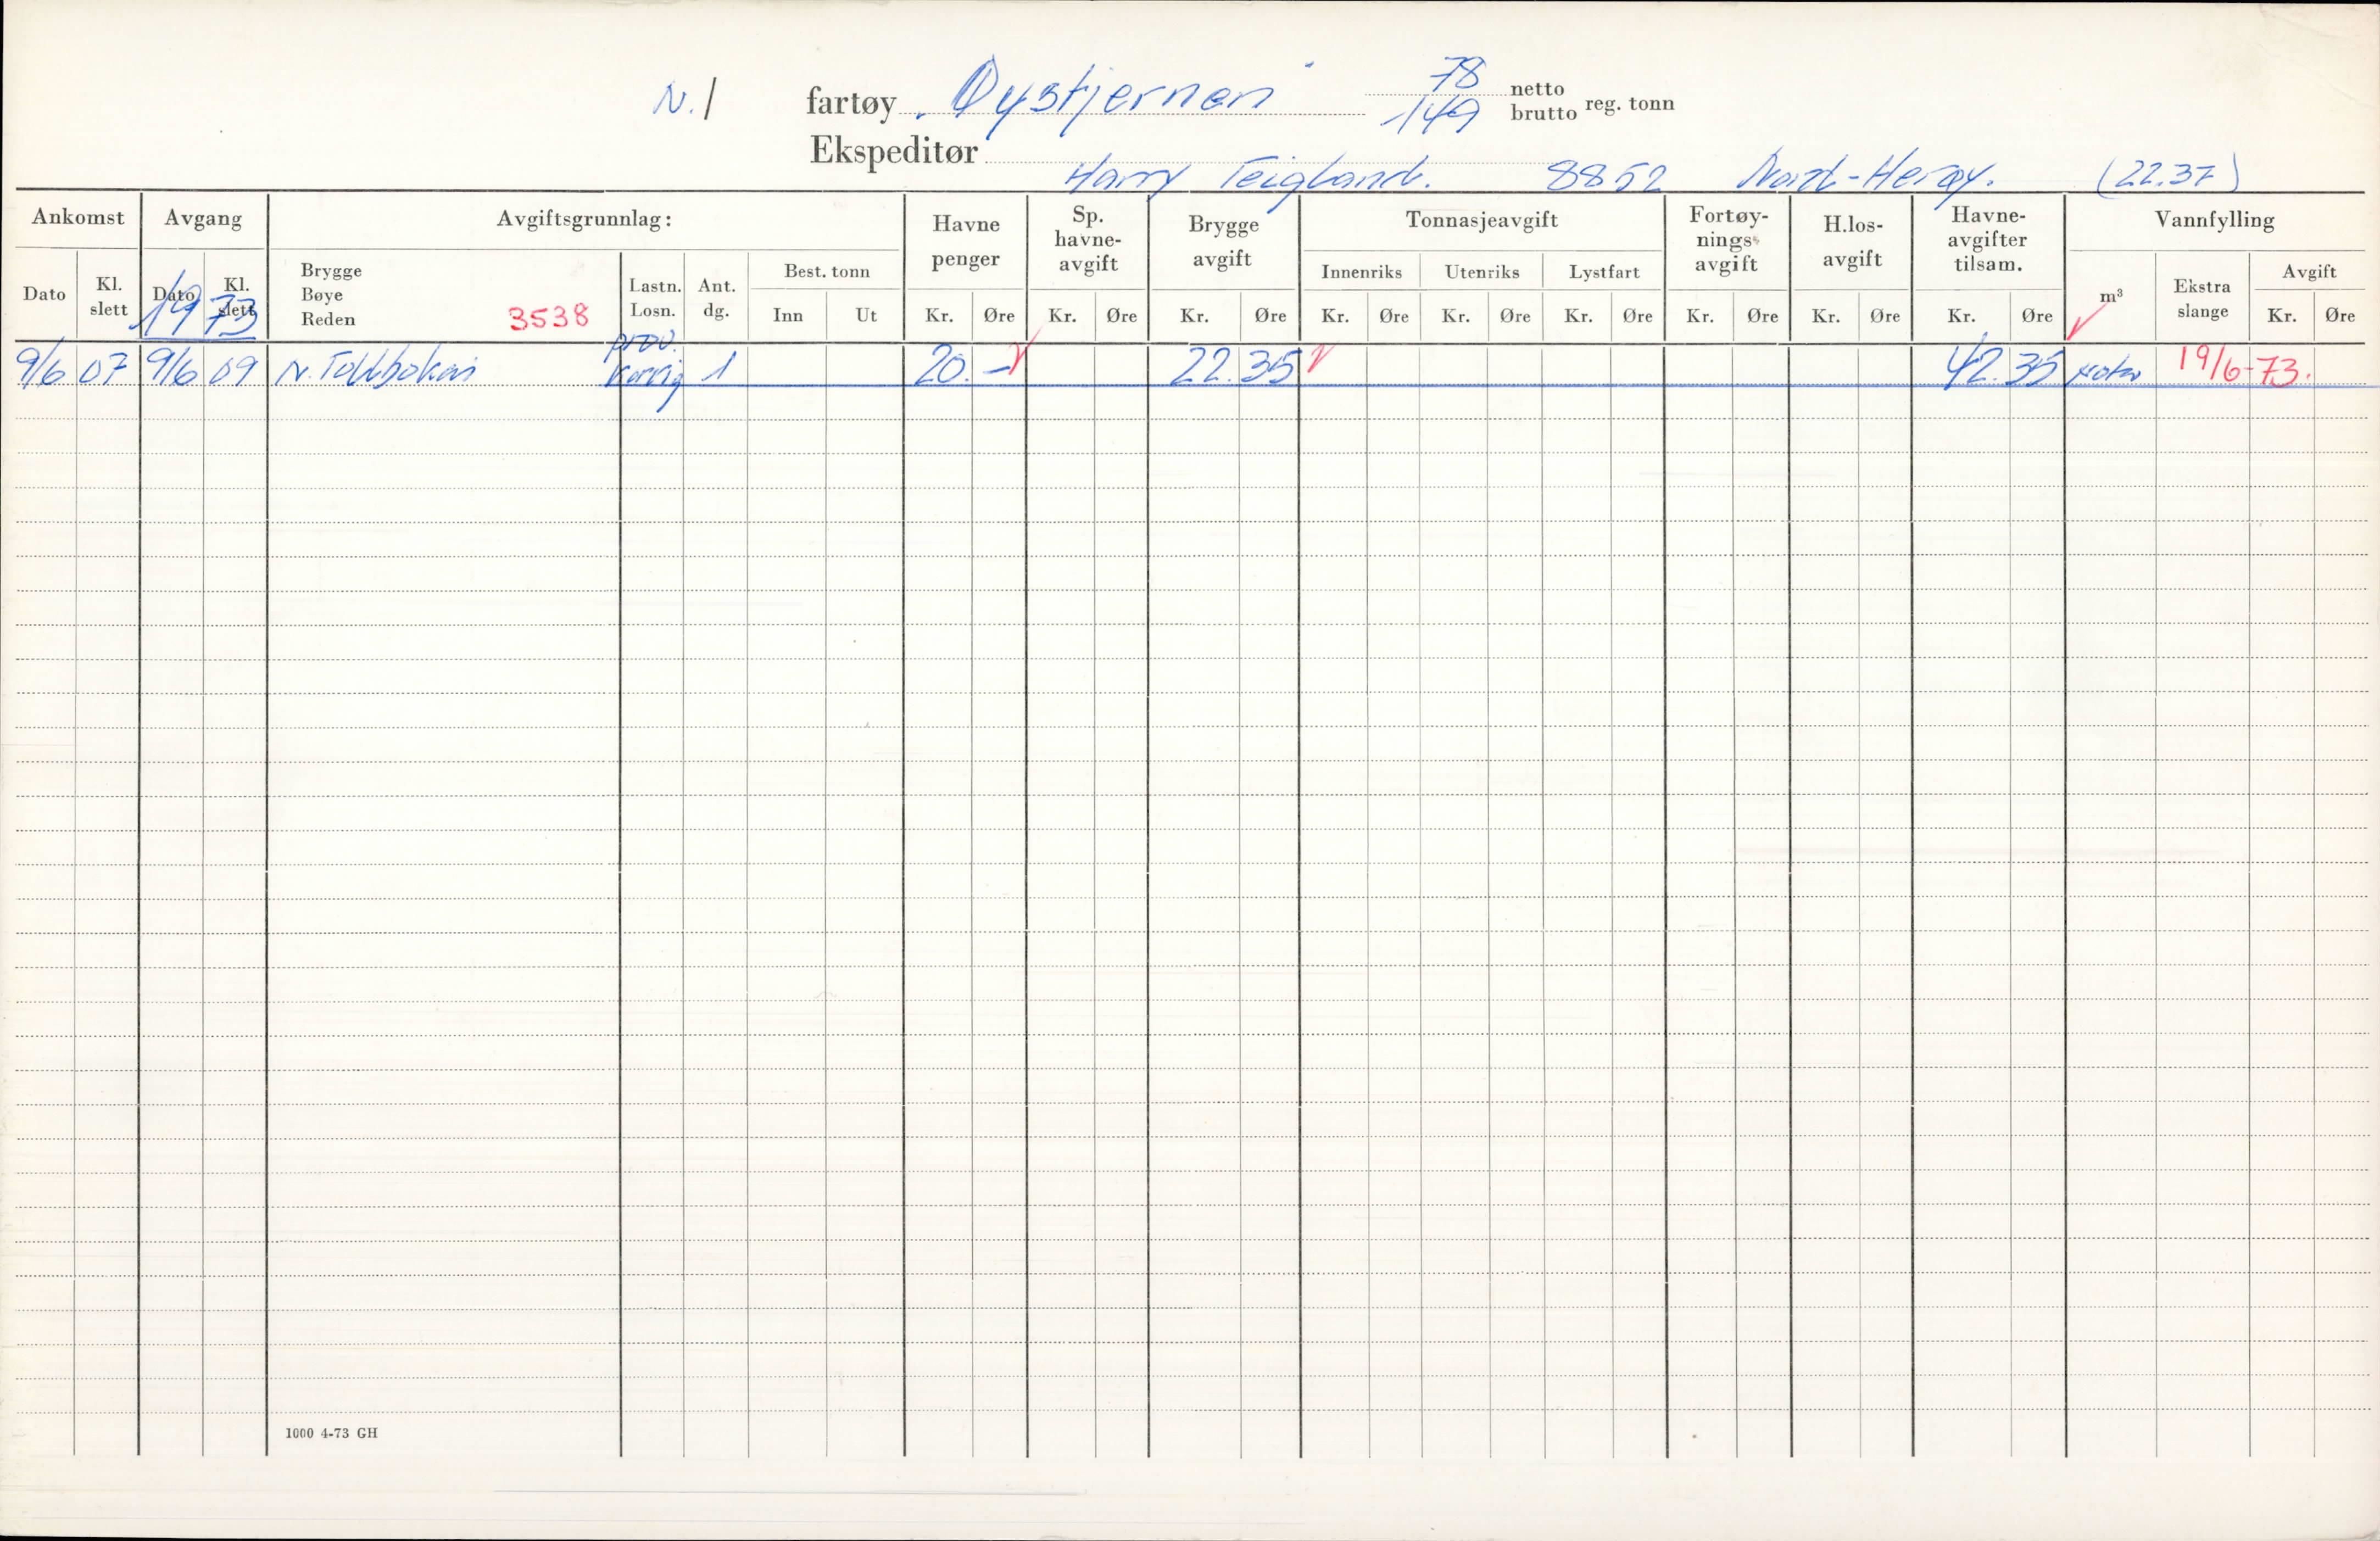 N.1 fartøy "Øystjernen" 78 netto
149 brutto reg. tonn
Ekspeditør Harry Teigland. 8852 Nord-Herøy. (22.37)
Ankomst Avgang Avgiftsgrunnlag: Havne penger Sp. havne-avgift Brygge avgift Tonnasjeavgift Fortøy-nings-avgift H.los-avgift Havne-avgifter tilsam. Vannfylling
Dato Kl. slett Dato Kl. slett Brygge Bøye Reden 3538 Lastn. Losn. Ant. dg. Best. tonn Innenriks Utenriks Lystfart m³ Ekstra slange Avgift
1973 Inn Ut Kr. Øre Kr. Øre Kr. Øre Kr. Øre Kr. Øre Kr. Øre Kr. Øre Kr. Øre Kr. Øre Kr. Øre
9/6 07 9/6 09 N. Tollbokai prov. 1 20.- 22.35 42.35 19/6-73.
1000 4-73 GH